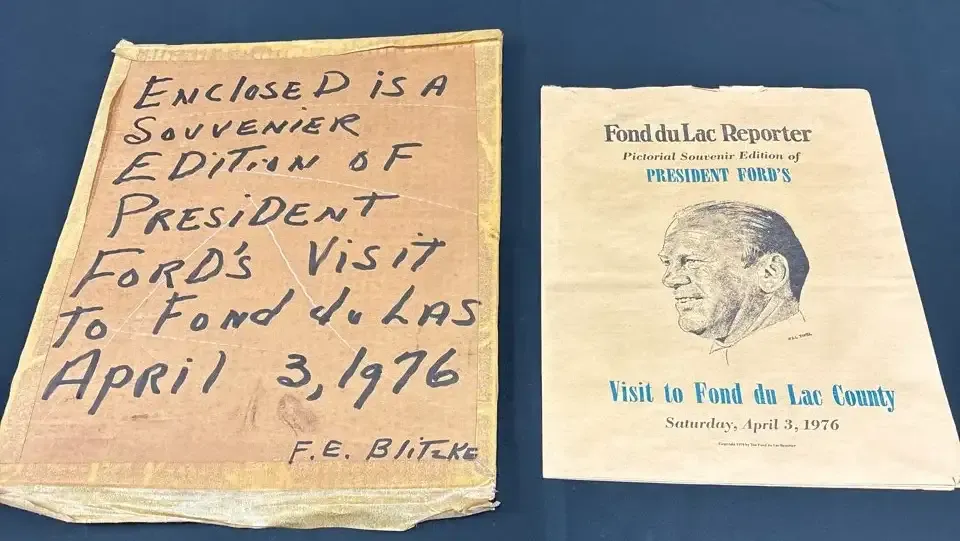 ENClOSED iS A
SOUVENIER
EDiTiON OF
PRESiDENT
FORD'S VisiT
To Fond du LAS
April 3, 1976
F.E. BliTzKE
Fond du Lac Reporter
Pictorial Souvenir Edition of
PRESIDENT FORD'S
Visit to Fond du Lac County
Saturday, April 3, 1976